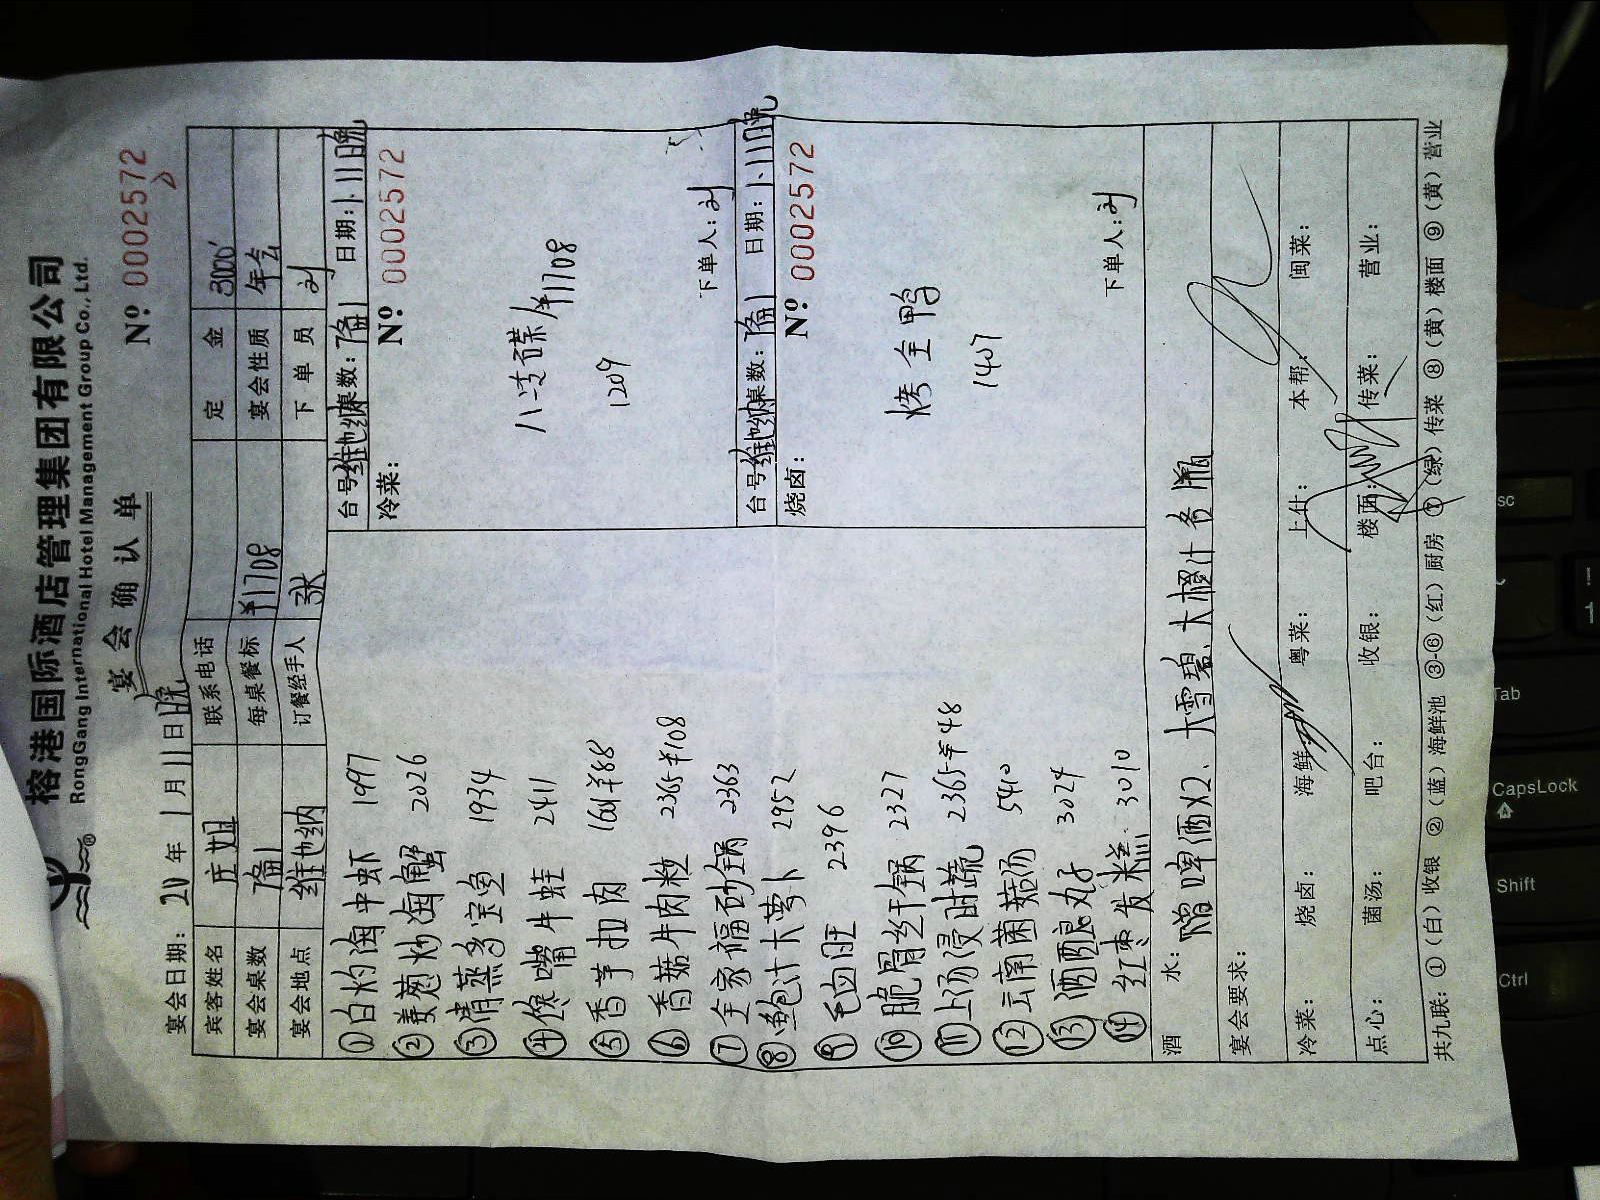 榕港国际酒店管理集团有限公司
RongGang International Hotel Management Group Co., Ltd.
宴会确认单
№ 0002572
宴会日期: 20 年 1 月 11 日 晚
宾客姓名 庄姐 联系电话 定金 3000
宴会桌数 7备1 每桌餐标 ¥1708 宴会性质 年会
宴会地点 维也纳 订餐经手人 张 下单员 刘
①白灼海中虾 1997
②姜葱炒海蟹 2026
③清蒸多宝鱼 1934
④馋嘴牛蛙 2411
⑤香芋扣肉 1601 ¥88
⑥香菇牛肉粒 2365 ¥108
⑦全家福砂锅 2363
⑧鲍汁大萝卜 2952
⑨毛血旺 2396
⑩脆骨丝干锅 2327
⑪上汤浸时蔬 2365 ¥48
⑫云南菌菇汤 5410
⑬酒酿丸子 3024
⑭红枣发糕 3010
台号 维也纳 桌数: 7备1 日期: 1.11日晚
冷菜: № 0002572
八冷碟/¥1708
1209
下单人: 刘
台号 维也纳 桌数: 7备1 日期: 1.11日晚
烧卤: № 0002572
烤全鸭
1407
下单人: 刘
酒水: 赠啤酒X2、大雪碧、大橙汁各1瓶
宴会要求:
冷菜: 烧卤: 海鲜: 粤菜: 上什: 本帮: 闽菜:
点心: 菌汤: 吧台: 收银: 楼面: 传菜: 营业:
共九联: ①(白)收银 ②(蓝)海鲜池 ③-⑥(红)厨房 ⑦(绿)传菜 ⑧(黄)楼面 ⑨(黄)营业
sc
Tab
CapsLock
Shift
Ctrl